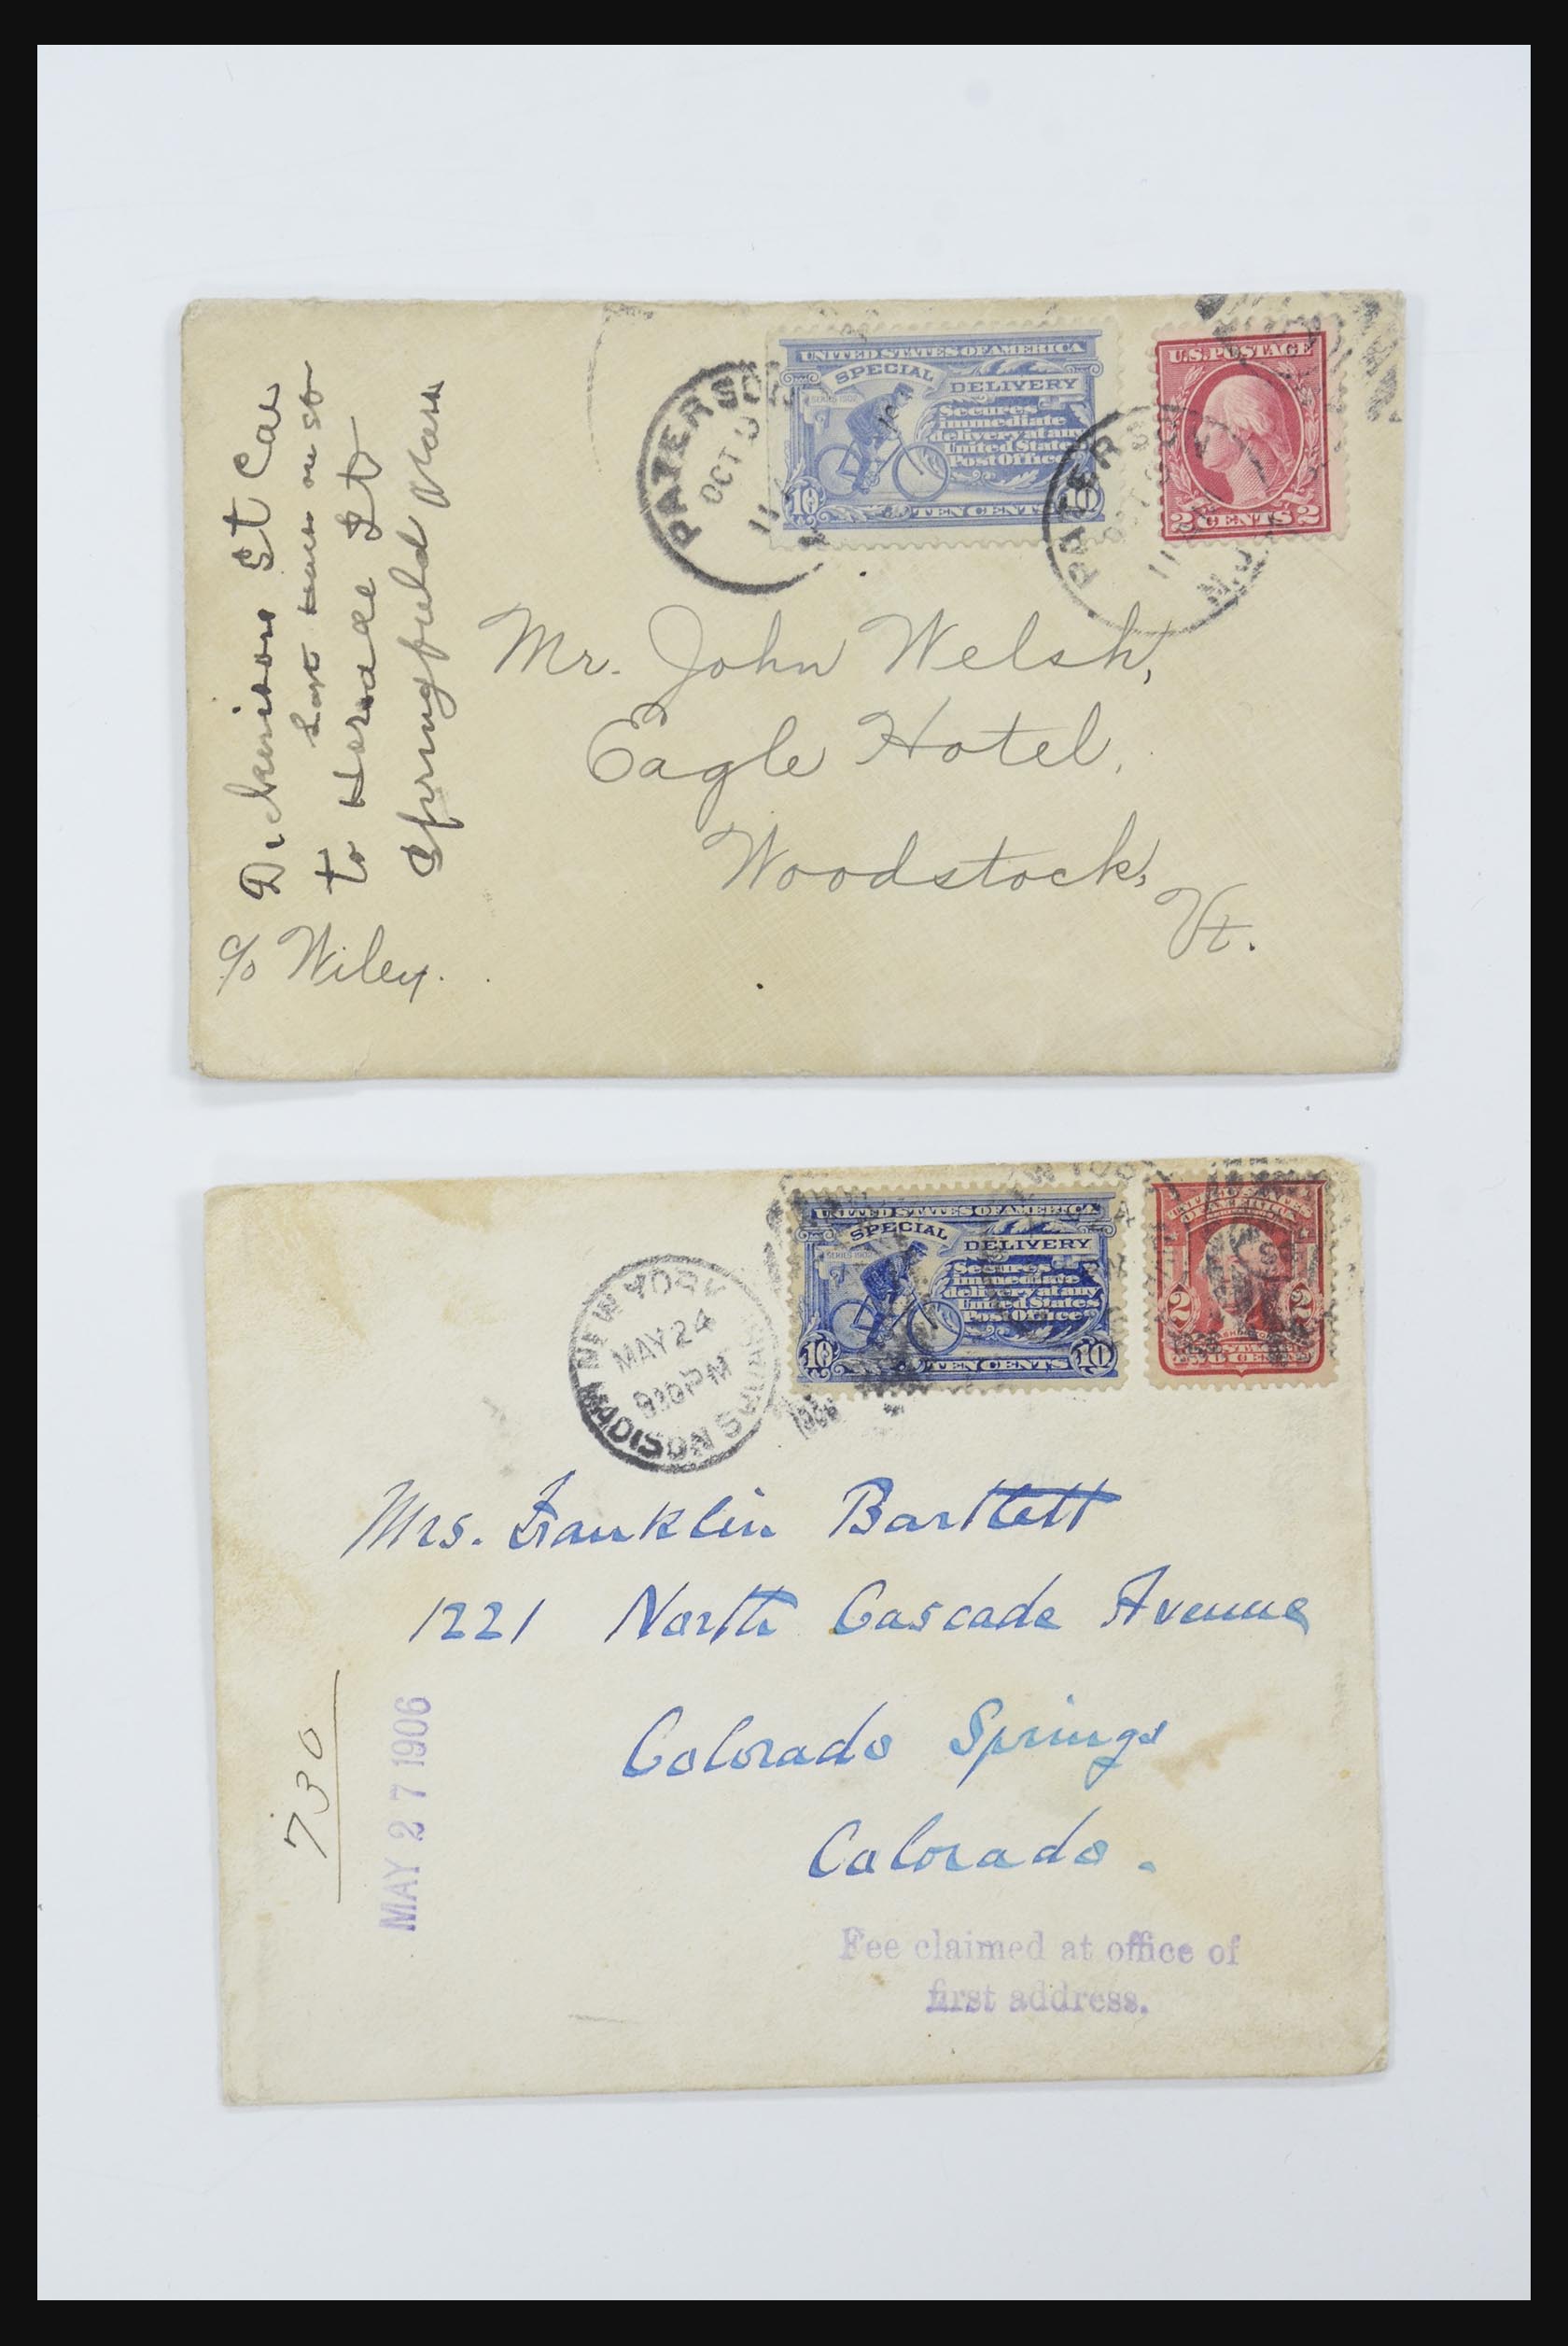 UNITED STATES OF AMERICA
SPECIAL DELIVERY
SERIES 1902
Secures
immediate
delivery at any
United States
Post Office
10 TEN CENTS 10
U.S. POSTAGE
2 CENTS 2
PATERSON
OCT
11
PATERSON
OCT
11
N.J.
Mr. John Welsh,
Eagle Hotel,
Woodstock,
Vt.
c/o Wiley.
Dickinson St Car
to Horace St
Springfield Mass
UNITED STATES OF AMERICA
SPECIAL DELIVERY
SERIES 1902
Secures
immediate
delivery at any
United States
Post Office
10 TEN CENTS 10
2 2
NEW YORK
MAY 24
PM
MADISON SQUARE
Mrs. Franklin Bartlett
1221 North Cascade Avenue
Colorado Springs
Colorado.
730
MAY 27 1906
Fee claimed at office of
first address.